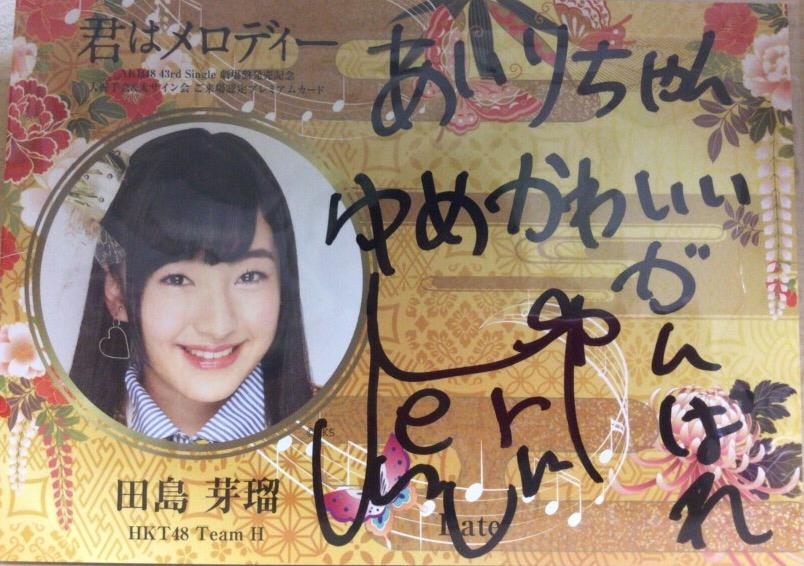 君はメロディー
AKB48 43rd Single 劇場盤発売記念
大握手会&大サイン会 ご来場認定プレミアムカード
あいりちゃん
ゆめかわいい
がんばれ
田島 芽瑠
HKT48 Team H
Date